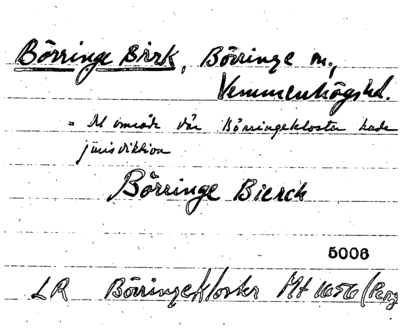 Börringe Birk, Börringe sn.,
Vemmenhögs hd.
= Det område där Börringekloster hade
jurisdiktion
Börringe Bierck
5006
LR Börringekloster Mt 1656 (Perg